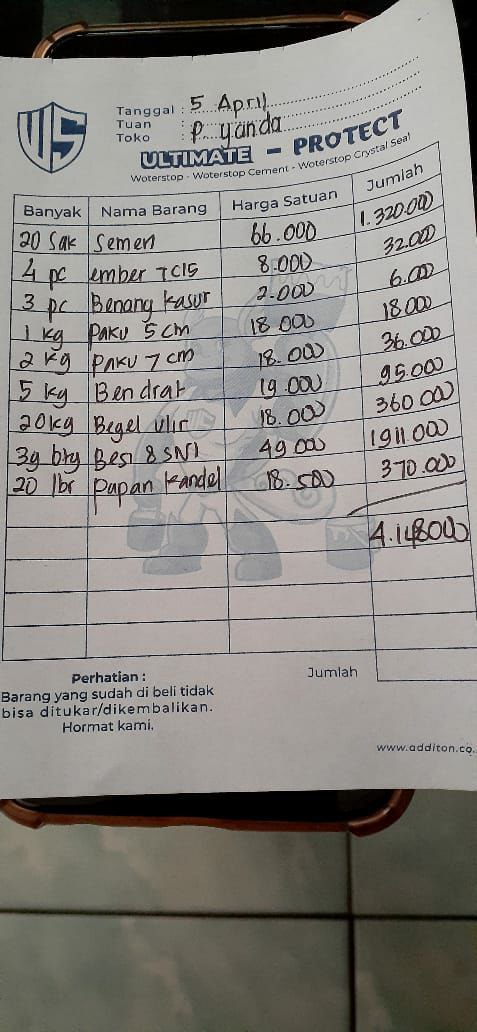 Tanggal : 5 April
Tuan
Toko : P yanda
ULTIMATE - PROTECT
Woterstop - Woterstop Cement - Woterstop Crystal Seal
Banyak Nama Barang Harga Satuan Jumlah
20 Sak Semen 66.000 1.320.000
4 pc ember 7C15 8.000 32.000
3 pc Benang kasur 2.000 6.000
1 kg paku 5 cm 18 000 18.000
2 kg paku 7 cm 18.000 36.000
5 kg Bendrat 19 000 95.000
20kg Begel ulir 18.000 360 000
39 btg Besi 8 SNI 49 000 1911.000
20 lbr papan kandel 18.500 370.000
4.148000
Jumlah
Perhatian :
Barang yang sudah di beli tidak
bisa ditukar/dikembalikan.
Hormat kami.
www.additon.co.